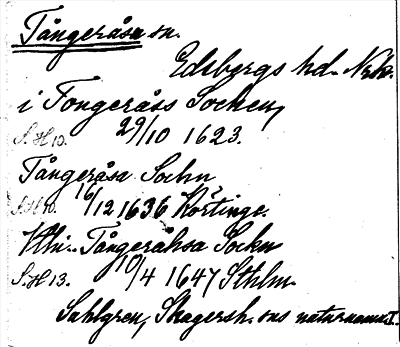 Tångeråsa sn.
Edsbergs hd. Nrke.
i Fongeråss Sochen,
S.H 10. 29/10 1623.
Tångeråsa Sochn
S.H 10. 16/12 1636 Körtinge.
Uthi Tångeråhsa Sockn
S.H 13. 10/4 1647 Sthlm.
Sahlgren, Skagersh. sns naturnamn I.